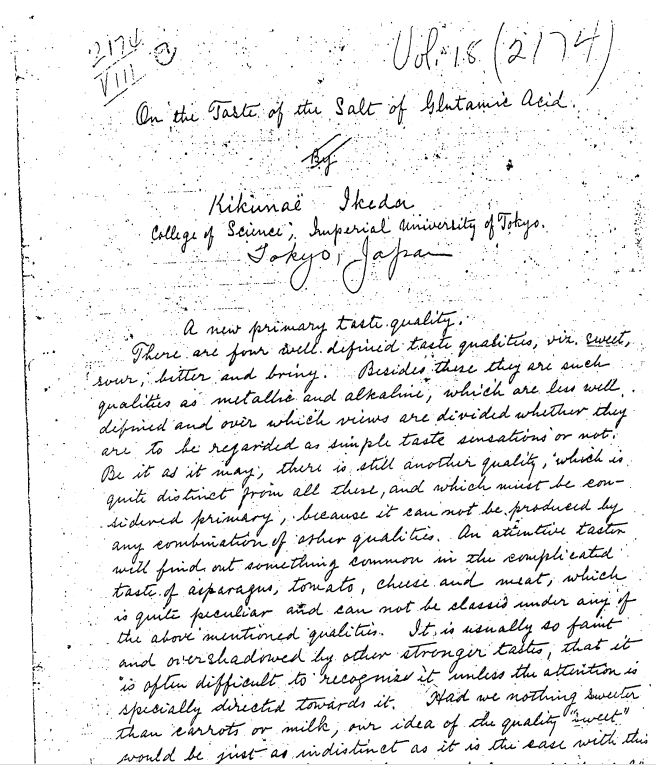 2174
VIII
Vol. 18 (2174)
On the Taste of the Salt of Glutamic Acid.
By
Kikunaë Ikeda
College of Science, Imperial University of Tokyo.
Tokyo, Japan
A new primary taste quality.
There are four well defined taste qualities, viz. sweet,
sour, bitter and briny. Besides these they are such
qualities as metallic and alkaline, which are less well
defined and over which views are divided whether they
are to be regarded as simple taste sensations or not.
Be it as it may, there is still another quality, which is
quite distinct from all these, and which must be con-
sidered primary, because it can not be produced by
any combination of other qualities. An attentive taster
will find out something common in the complicated
taste of asparagus, tomato, cheese and meat, which
is quite peculiar and can not be classed under any of
the above mentioned qualities. It is usually so faint
and overshadowed by other stronger tastes, that it
is often difficult to recognize it unless the attention is
specially directed towards it. Had we nothing sweeter
than carrots or milk, our idea of the quality "sweet"
would be just as indistinct as it is the case with this